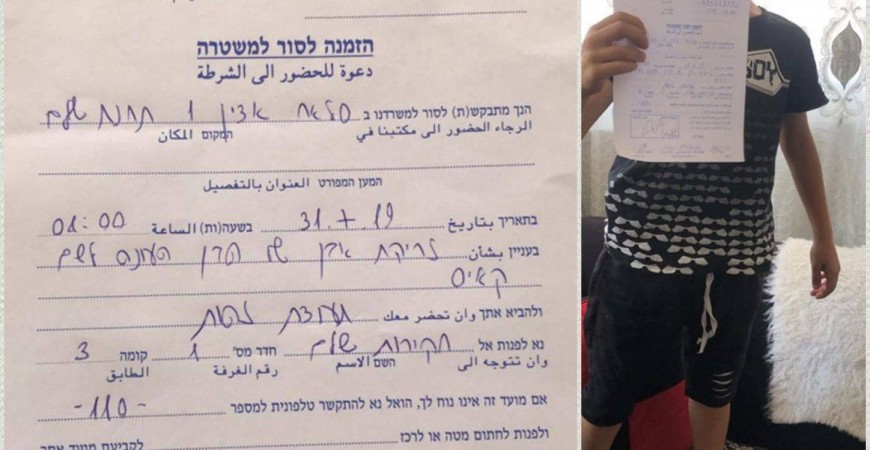 הזמנה לסור למשטרה
دعوة للحضور الى الشرطة
הנך מתבקש(ת) לסור למשרדנו ב סלאח אדין 1 תחנת שלם
الرجاء الحضور الى مكتبنا في המקום المكان
המען המפורט العنوان بالتفصيل
בתאריך بتاريخ 31.7.19 בשעה(ות) الساعة 08:00
בעניין بشأن זריקת אבן של הקטן העונה לשם
קאיס
ולהביא אתך وان تحضر معك תעודת זהות
נא לפנות אל חקירות שלם חדר מס' 1 קומה 3
وان تتوجه الى השם الاسم رقم الغرفة الطابق
אם מועד זה אינו נוח לך, הואל נא להתקשר טלפונית למספר -110-
ולפנות לחתום מטה או לרכז לקביעת מועד אחר
הזמנה לסור למשטרה